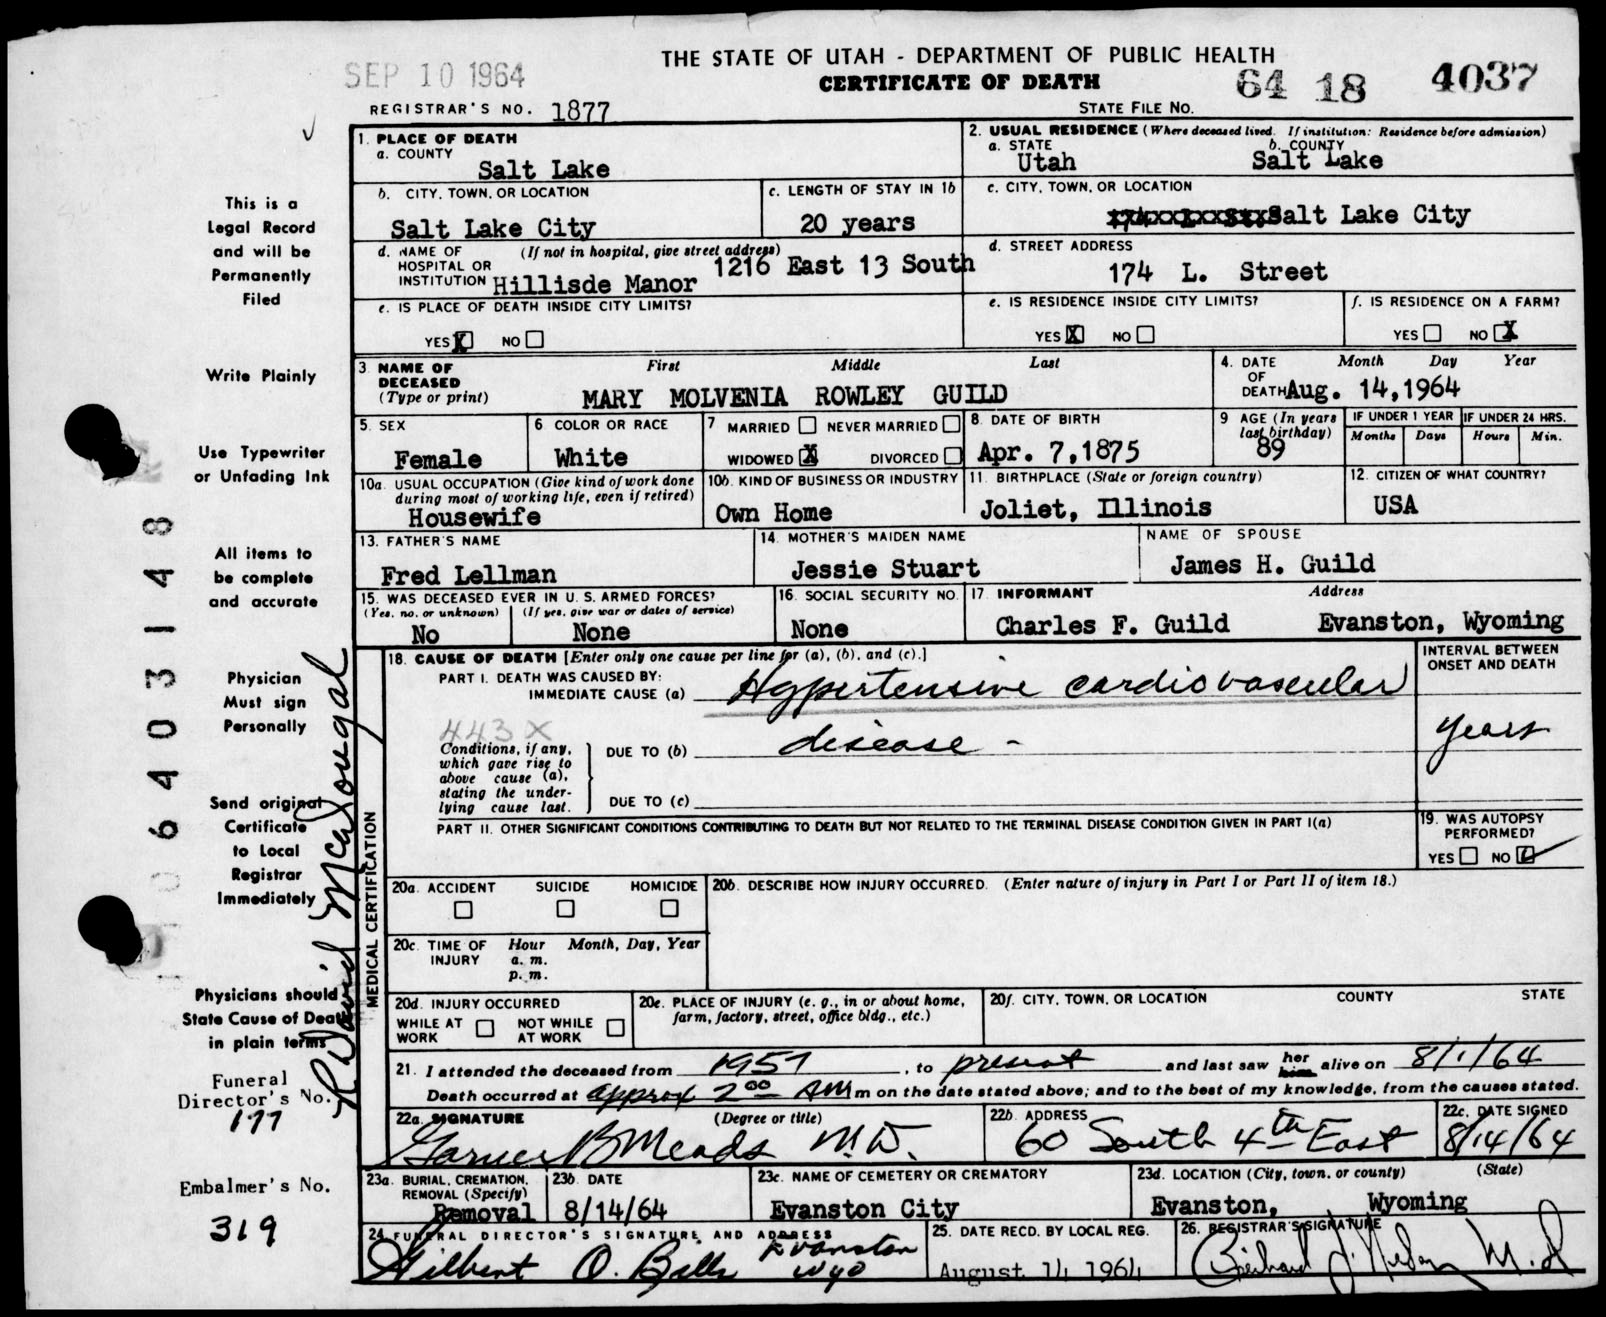 THE STATE OF UTAH - DEPARTMENT OF PUBLIC HEALTH
SEP 10 1964
CERTIFICATE OF DEATH
64 18 4037
REGISTRAR'S NO. 1877
STATE FILE NO.
1. PLACE OF DEATH
a. COUNTY
Salt Lake
2. USUAL RESIDENCE (Where deceased lived. If institution: Residence before admission)
a. STATE
Utah
b. COUNTY
Salt Lake
b. CITY, TOWN, OR LOCATION
Salt Lake City
c. LENGTH OF STAY IN 1b
20 years
c. CITY, TOWN, OR LOCATION
Salt Lake City
d. NAME OF HOSPITAL OR INSTITUTION
(If not in hospital, give street address)
1216 East 13 South
Hillisde Manor
d. STREET ADDRESS
174 L. Street
e. IS PLACE OF DEATH INSIDE CITY LIMITS?
YES X NO
e. IS RESIDENCE INSIDE CITY LIMITS?
YES X NO
f. IS RESIDENCE ON A FARM?
YES NO X
3. NAME OF DECEASED
(Type or print)
First Middle Last
MARY MOLVENIA ROWLEY GUILD
4. DATE OF DEATH
Month Day Year
Aug. 14,1964
5. SEX
Female
6 COLOR OR RACE
White
7 MARRIED NEVER MARRIED
WIDOWED X DIVORCED
8. DATE OF BIRTH
Apr. 7,1875
9 AGE (In years last birthday)
89
IF UNDER 1 YEAR
Months Days
IF UNDER 24 HRS.
Hours Min.
10a. USUAL OCCUPATION (Give kind of work done during most of working life, even if retired)
Housewife
10b. KIND OF BUSINESS OR INDUSTRY
Own Home
11. BIRTHPLACE (State or foreign country)
Joliet, Illinois
12. CITIZEN OF WHAT COUNTRY?
USA
13. FATHER'S NAME
Fred Lellman
14. MOTHER'S MAIDEN NAME
Jessie Stuart
NAME OF SPOUSE
James H. Guild
15. WAS DECEASED EVER IN U. S. ARMED FORCES?
(Yes, no, or unknown) (If yes, give war or dates of service)
No None
16. SOCIAL SECURITY NO.
None
17. INFORMANT Address
Charles F. Guild Evanston, Wyoming
18. CAUSE OF DEATH [Enter only one cause per line for (a), (b), and (c).]
PART I. DEATH WAS CAUSED BY:
IMMEDIATE CAUSE (a) Hypertensive cardiovascular
443 X
Conditions, if any, which gave rise to above cause (a), stating the underlying cause last.
DUE TO (b) disease -
DUE TO (c)
INTERVAL BETWEEN ONSET AND DEATH
years
PART II. OTHER SIGNIFICANT CONDITIONS CONTRIBUTING TO DEATH BUT NOT RELATED TO THE TERMINAL DISEASE CONDITION GIVEN IN PART I(a)
19. WAS AUTOPSY PERFORMED?
YES NO
MEDICAL CERTIFICATION
20a. ACCIDENT SUICIDE HOMICIDE
20b. DESCRIBE HOW INJURY OCCURRED. (Enter nature of injury in Part I or Part II of item 18.)
20c. TIME OF INJURY
Hour Month, Day, Year
a. m.
p. m.
20d. INJURY OCCURRED
WHILE AT WORK NOT WHILE AT WORK
20e. PLACE OF INJURY (e. g., in or about home, farm, factory, street, office bldg., etc.)
20f. CITY, TOWN, OR LOCATION COUNTY STATE
21. I attended the deceased from 1957, to present and last saw her him alive on 8/1/64
Death occurred at approx 2 00 AM m on the date stated above; and to the best of my knowledge, from the causes stated.
22a. SIGNATURE (Degree or title)
Garner B Meads M.D.
22b. ADDRESS
60 South 4th East
22c. DATE SIGNED
8/14/64
23a. BURIAL, CREMATION, REMOVAL (Specify)
Removal
23b. DATE
8/14/64
23c. NAME OF CEMETERY OR CREMATORY
Evanston City
23d. LOCATION (City, town, or county) (State)
Evanston, Wyoming
24 FUNERAL DIRECTOR'S SIGNATURE AND ADDRESS
Gilbert O. Bills Evanston Wyo
25. DATE RECD. BY LOCAL REG.
August 14 1964
26. REGISTRAR'S SIGNATURE
M.D
This is a
Legal Record
and will be
Permanently
Filed
Write Plainly
Use Typewriter
or Unfading Ink
All items to
be complete
and accurate
Physician
Must sign
Personally
Send original
Certificate
to Local
Registrar
Immediately
Physicians should
State Cause of Death
in plain terms
Funeral
Director's No.
177
Embalmer's No.
319
R David McDougal
06403148